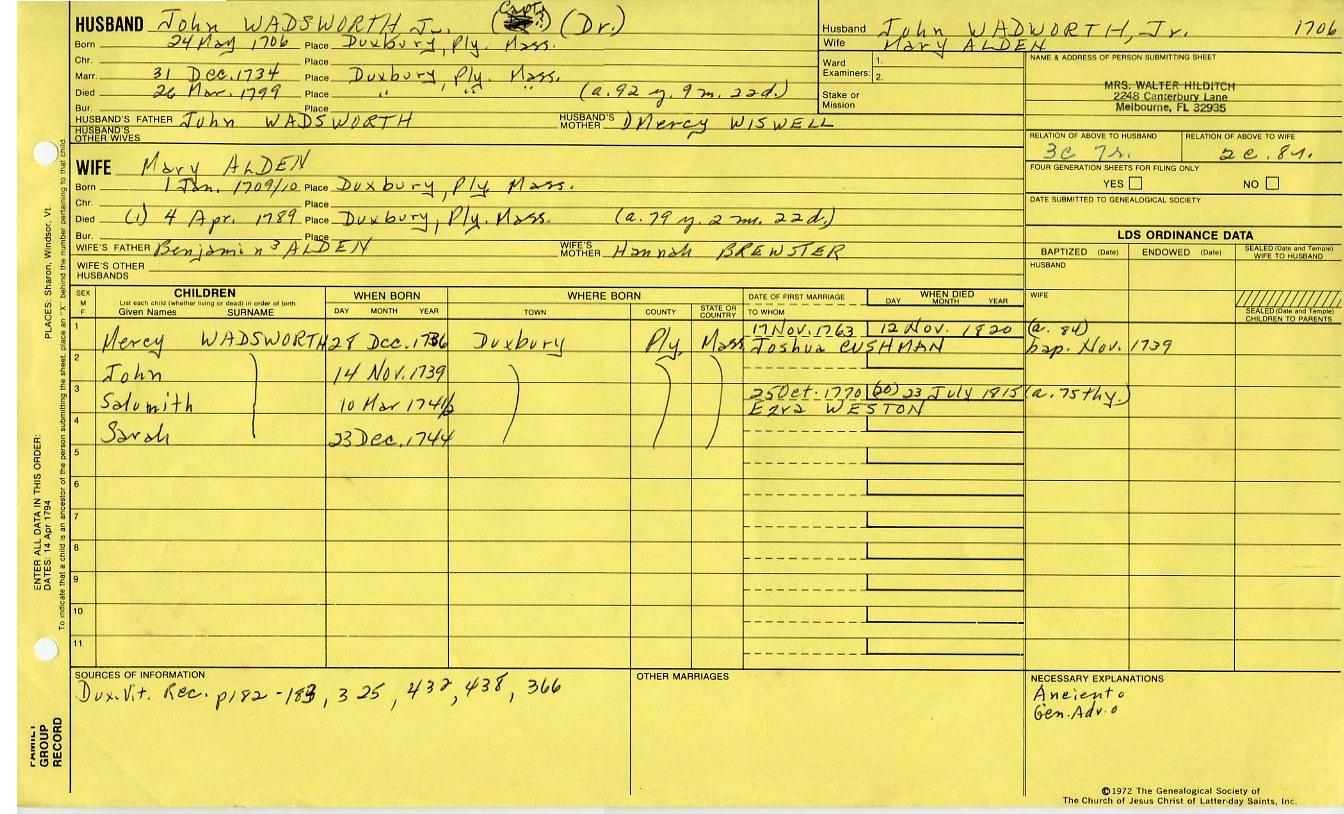 HUSBAND John WADSWORTH Jr. (Capt.) (Dr.)
Born 24 May 1706 Place Duxbury, Ply. Mass.
Chr. Place
Marr. 31 Dec. 1734 Place Duxbury, Ply. Mass.
Died 26 Mar. 1799 Place " " (a. 92 y. 9 m. 22d.)
Bur. Place
HUSBAND'S FATHER John WADSWORTH HUSBAND'S MOTHER Mercy WISWELL
HUSBAND'S OTHER WIVES
Husband John WADWORTH, Jr. 1706
Wife Mary ALDEN
Ward Examiners: 1.
2.
Stake or Mission
NAME & ADDRESS OF PERSON SUBMITTING SHEET
MRS. WALTER HILDITCH
2248 Canterbury Lane
Melbourne, FL 32935
RELATION OF ABOVE TO HUSBAND RELATION OF ABOVE TO WIFE
3c 7r. 2c. 8r.
FOUR GENERATION SHEETS FOR FILING ONLY
YES NO
DATE SUBMITTED TO GENEALOGICAL SOCIETY
WIFE Mary ALDEN
Born 1 Jan. 1709/10 Place Duxbury, Ply Mass.
Chr. Place
Died (1) 4 Apr. 1789 Place Duxbury, Ply. Mass. (a. 79 y. 2 m. 22d.)
Bur. Place
WIFE'S FATHER Benjamin 3 ALDEN WIFE'S MOTHER Hannah BREWSTER
WIFE'S OTHER HUSBANDS
LDS ORDINANCE DATA
BAPTIZED (Date) ENDOWED (Date) SEALED (Date and Temple) WIFE TO HUSBAND
HUSBAND
WIFE
SEALED (Date and Temple) CHILDREN TO PARENTS
SEX M F CHILDREN WHEN BORN WHERE BORN DATE OF FIRST MARRIAGE WHEN DIED
List each child (whether living or dead) in order of birth
Given Names SURNAME DAY MONTH YEAR TOWN COUNTY STATE OR COUNTRY TO WHOM DAY MONTH YEAR
1 17 Nov. 1763 12 Nov. 1820 (a. 84)
Mercy WADSWORTH 28 Dec. 1736 Duxbury Ply. Mass Joshua CUSHMAN bap. Nov. 1739
2 John 14 Nov. 1739
3 25 Oct. 1770 (20) 23 July 1815 (a. 75thy.)
Salumith 10 Mar 1741/2 Ezra WESTON
4 Sarah 23 Dec. 1744
5
6
7
8
9
10
11
SOURCES OF INFORMATION
Dux. Vit. Rec. p182-183, 325, 432, 438, 366
OTHER MARRIAGES
NECESSARY EXPLANATIONS
Gen. Adv.
©1972 The Genealogical Society of
The Church of Jesus Christ of Latter-day Saints, Inc.
ENTER ALL DATA IN THIS ORDER: PLACES: Sharon, Windsor, Vt.
DATES: 14 Apr 1794
To indicate that a child is an ancestor of the person submitting the sheet, place an "X" behind the number pertaining to that child.
FAMILY GROUP RECORD